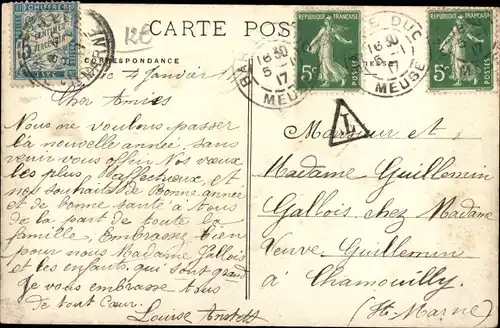 CARTE POS
CORRESPONDANCE
CHIFFRE
CENTIMES
À PERCEVOIR
5
12€
RÉPUBLIQUE FRANÇAISE
5c
POSTES
RÉPUBLIQUE FRANÇAISE
5c
POSTES
16 30
5 - 1
17
MEUSE
BAR-LE-DUC
16 30
17
MEUSE
T
4 Janvier 1
Chers Amies
Nous ne voulons passer
la nouvelle année sans
venir vous offrir Nos vœux
les plus affectueux et
nos souhaits de Bonne année
et de bonne santé à tous
de la part de toute la
famille, Embrassez bien
pour nous Madame Gallois
et les enfants qui sont grands
Je vous embrasse tous
de tout Cœur.
Louise
Monsieur et
Madame Guillemin
Gallois chez Madame
Veuve Guillemin
à Chamouilly
(Hte Marne)